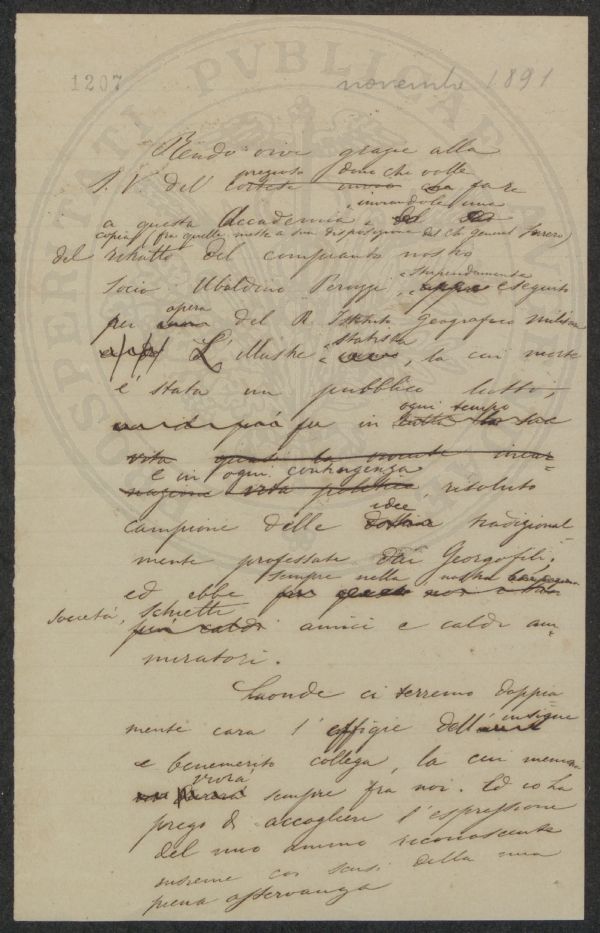 1207
novembre 1891
PROSPERITATI PVBLICAE AVGENDAE
Rendo vive grazie alla
prezioso dono che volle
S. V. del cortese fare
inviandole una
a questa Accademia
copia (fra quelle messe a sua disposizione dal Ch. general Ferrero)
del ritratto del compianto nostro
stupendamente
Socio Ubaldino Peruzzi, eseguito
opera
per del R. Istituto Geografico militare
statista
L'Illustre, la cui morte
è stata un pubblico lutto,
ogni tempo
fu in tutta la sua
vita
e in ogni contingenza
vita politica, risoluto
idee
campione delle tradizional
mente professate dai Georgofili,
sempre nella nostra
ed ebbe
Società, schietti
più caldi amici e caldi am=
miratori.
Laonde ci terremo doppia
mente cara l'effigie dell'insigne
e benemerito collega, la cui memoria
vivrà
sempre fra noi. Ed io La
prego di accogliere l'espressione
del mio animo riconoscente
insieme coi sensi della mia
piena osservanza